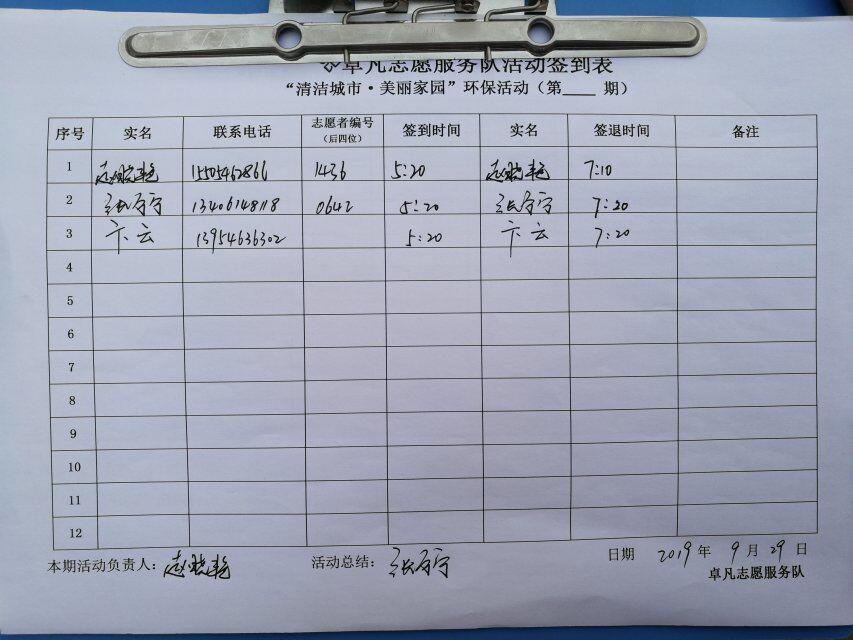 卓凡志愿服务队活动签到表
“清洁城市·美丽家园”环保活动（第____期）
序号 实名 联系电话 志愿者编号（后四位） 签到时间 实名 签退时间 备注
1 赵晓艳 1436 5:20 赵晓艳 7:10
2 13406148118 0642 5:20 7:20
3 卞云 13954636302 5:20 卞云 7:20
4
5
6
7
8
9
10
11
12
本期活动负责人：赵晓艳 活动总结： 日期 2019年9月29日
卓凡志愿服务队